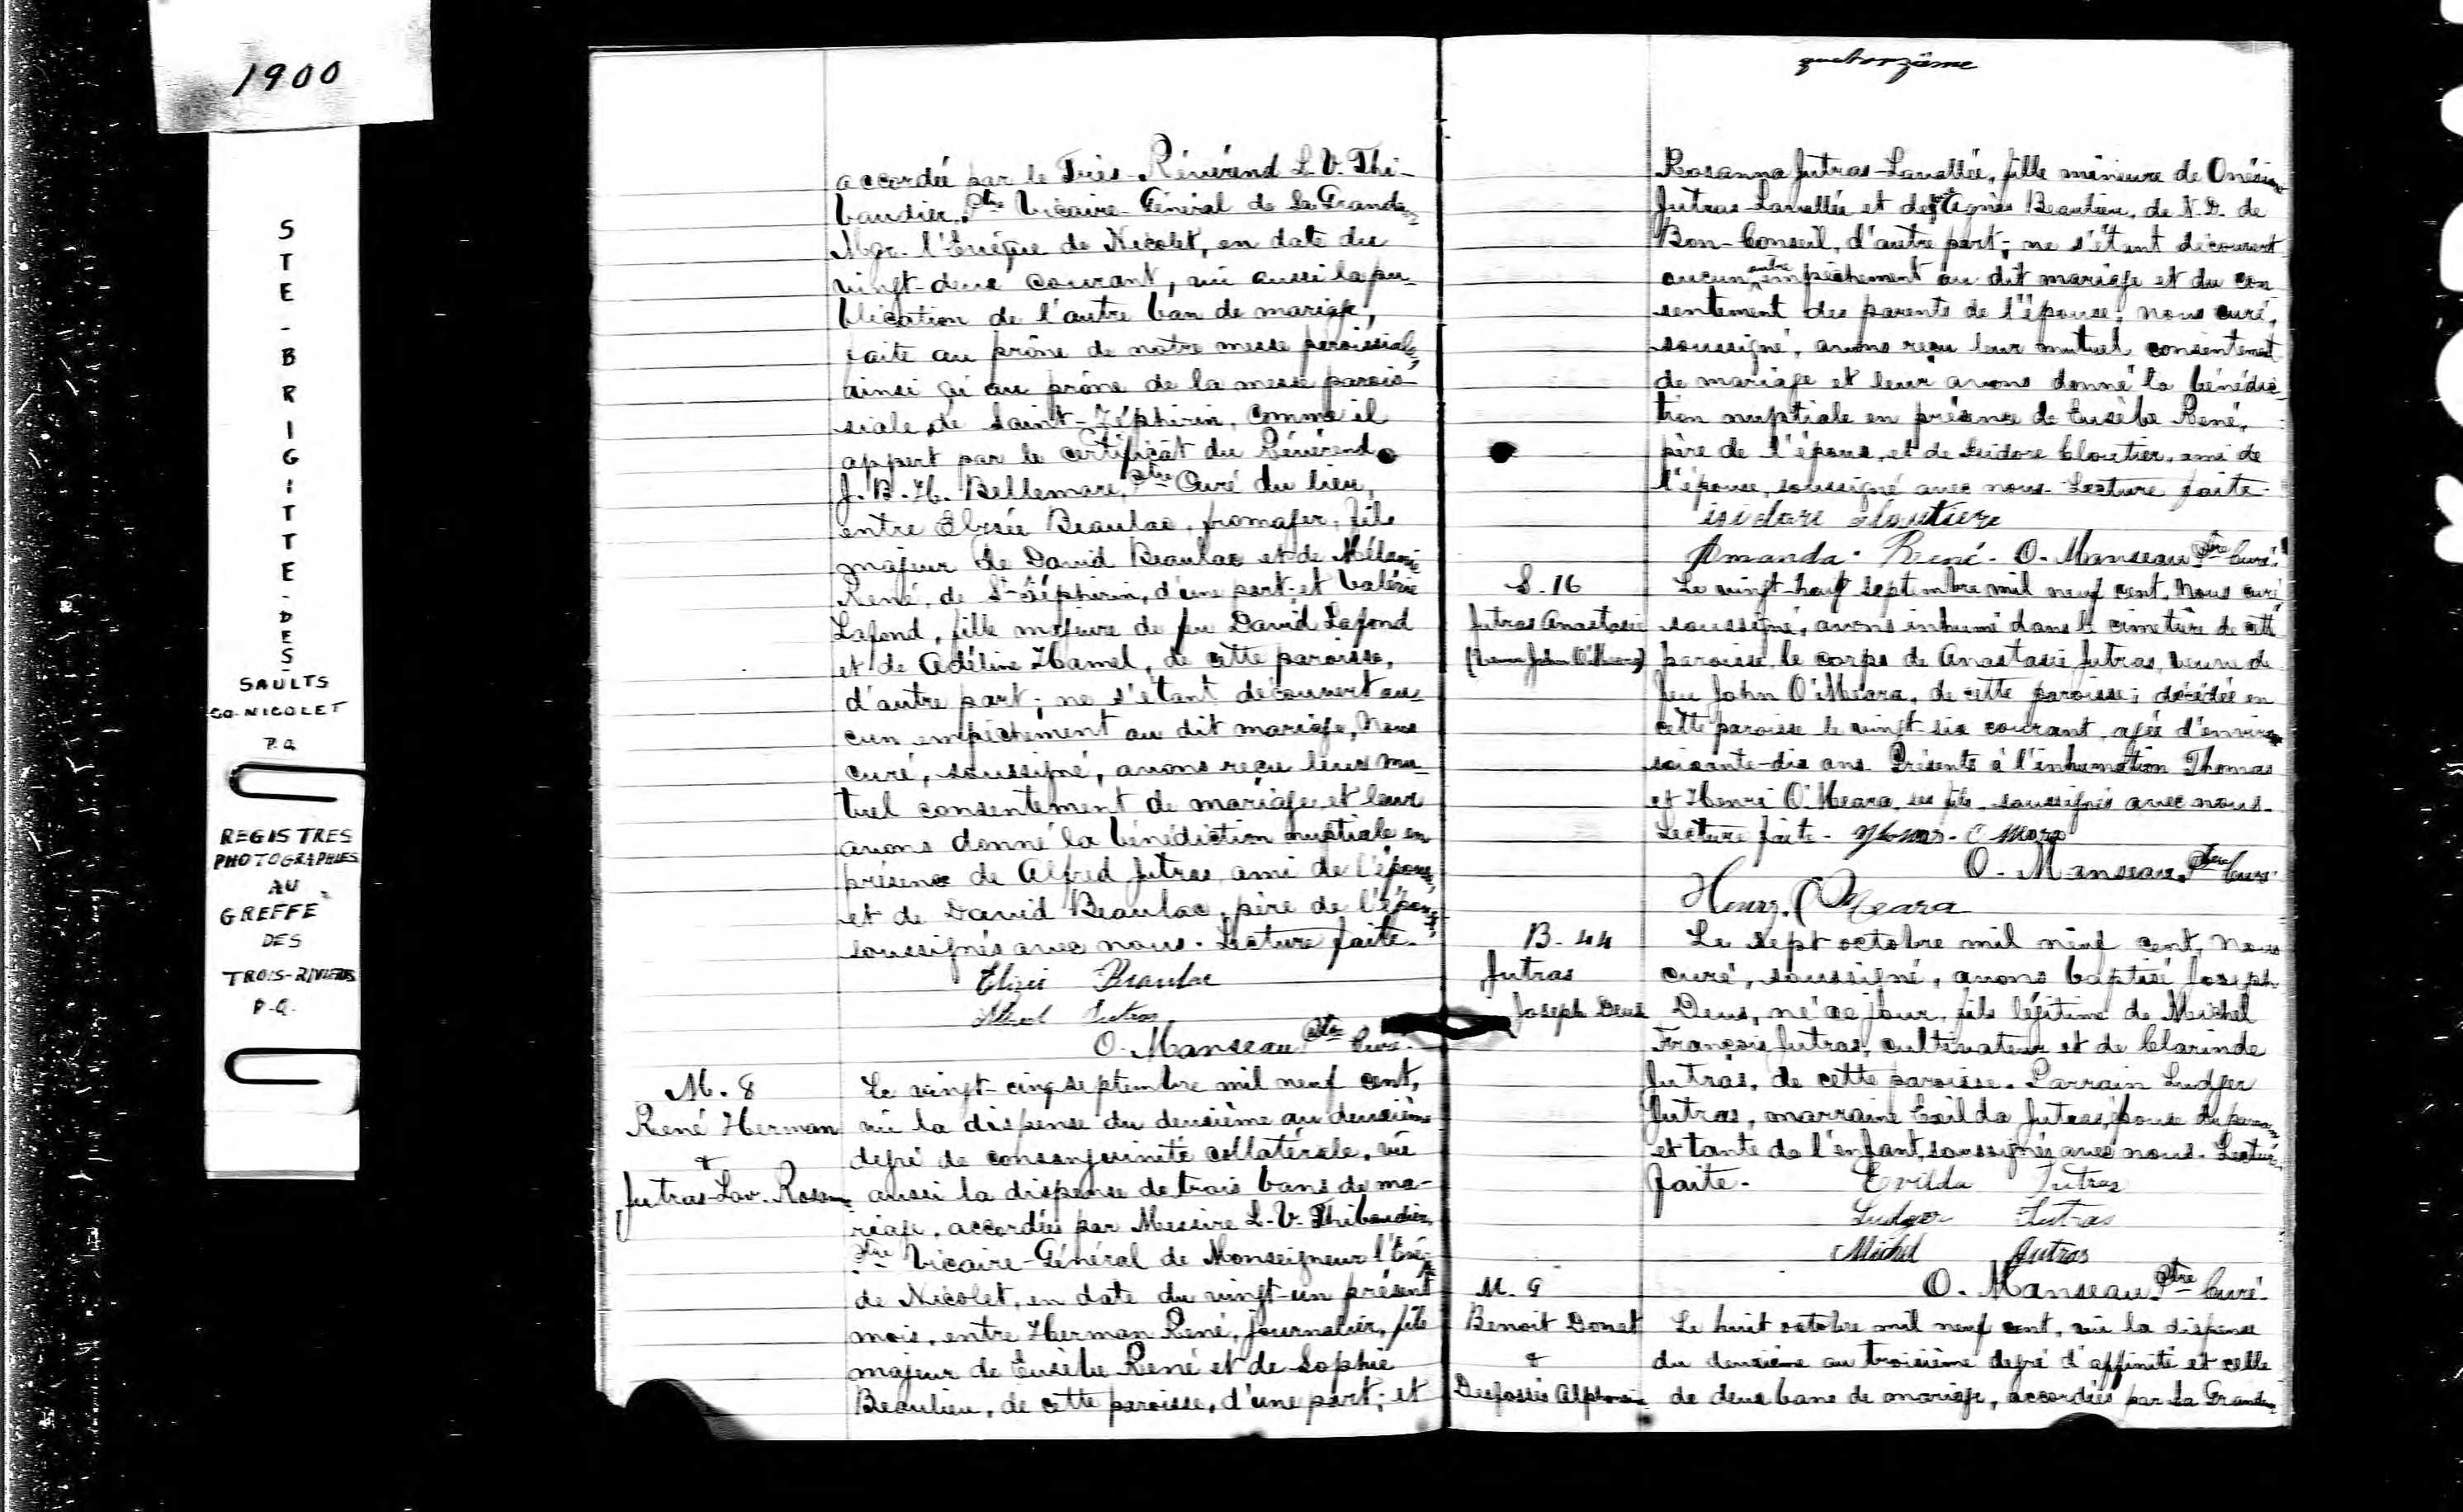 1900
STE-BRIGITTE-DES-
SAULTS
CO. NICOLET
P.Q.
REGISTRES
PHOTOGRAPHIES
AU
GREFFE
DES
TROIS-RIVIERES
P.Q.
accordée par le Très-Révérend L. V. Thi-
baudier, Ptre Vicaire-Général de Sa Grandeur
Mgr. l'Evêque de Nicolet, en date du
vingt-deux courant, vu aussi la pu-
blication de l'autre ban de mariage,
faite au prône de notre messe paroissiale,
ainsi qu'au prône de la messe parois-
siale de Saint-Zéphirin, comme il
appert par le certificat du Révérend
J. B. H. Bellemare, Ptre Curé du lieu,
entre Elzée Beaulac, fromager, fils
majeur de David Beaulac et de Mélanie
René, de St-Zéphirin, d'une part et Valérie
Lafond, fille majeure de feu David Lafond
et de Adéline Hamel, de cette paroisse,
d'autre part; ne s'étant découvert au-
cun empêchement au dit mariage, Nous
curé, soussigné, avons reçu leur mu-
tuel consentement de mariage et leur
avons donné la bénédiction nuptiale en
présence de Alfred Jutras, ami de l'époux,
et de David Beaulac, père de l'époux,
soussignés avec nous. Lecture faite.
Elzée Beaulac
Jutras
O. Manseau Ptre Curé.
M. 8
René Herman
&
Jutras-Lav. Rosanna
Le vingt-cinq septembre mil neuf cent,
vu la dispense du deuxième au deuxième
degré de consanguinité collatérale, vu
aussi la dispense de trois bans de ma-
riage, accordées par Messire L. V. Thibaudier,
Ptre Vicaire-Général de Monseigneur l'Evêque
de Nicolet, en date du vingt-un présent
mois, entre Herman René, journalier, fils
majeur de Eusèbe René et de Sophie
Beaulieu, de cette paroisse, d'une part; et
quatorzième
Rosanna Jutras-Lavallée, fille mineure de Onésime
Jutras-Lavallée et de Agnès Beaulieu, de N.D. de
Bon-Conseil, d'autre part; ne s'étant découvert
aucun autre empêchement au dit mariage et du con
sentement des parents de l'épouse; nous curé,
soussigné, avons reçu leur mutuel consentement
de mariage et leur avons donné la bénédic-
tion nuptiale en présence de Eusèbe René,
père de l'époux, et de Isidore Cloutier, ami de
l'épouse, soussigné avec nous. Lecture faite.
isidore cloutiere
Amanda René. O. Manseau Ptre Curé.
S. 16
Jutras Anastasie
(veuve John O'Meara)
Le vingt-huit septembre mil neuf cent, Nous curé
soussigné, avons inhumé dans le cimetière de cette
paroisse, le corps de Anastasie Jutras, veuve de
feu John O'Meara, de cette paroisse; décédée en
cette paroisse le vingt-six courant, agée d'environ
soixante-dix ans. Présents à l'inhumation Thomas
et Henri O'Meara, ses fils, soussignés avec nous.
Lecture faite. Thomas O Meara
O. Manseau, Ptre Curé.
Henry O'Meara
B. 44
Jutras
Joseph Deus
Le sept octobre mil neuf cent, Nous
curé, soussigné, avons baptisé Joseph
Deus, né ce jour, fils légitime de Michel
François Jutras, cultivateur et de Clarinde
Jutras, de cette paroisse. Parrain Ludger
Jutras, marraine Exilda Jutras, épouse du parrain
et tante de l'enfant, soussignés avec nous. Lecture
faite. Exilda Jutras
Ludger Jutras
Michel Jutras
O. Manseau Ptre Curé.
M. 9
Benoit Donat
&
Desfossés Alphonsine
Le huit octobre mil neuf cent, vu la dispense
du deuxième au troisième degré d'affinité et celle
de deux bans de mariage, accordées par Sa Grandeur